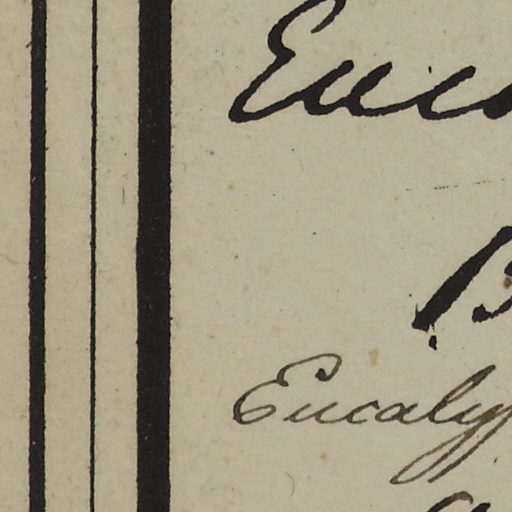 Euc
B
Eucaly